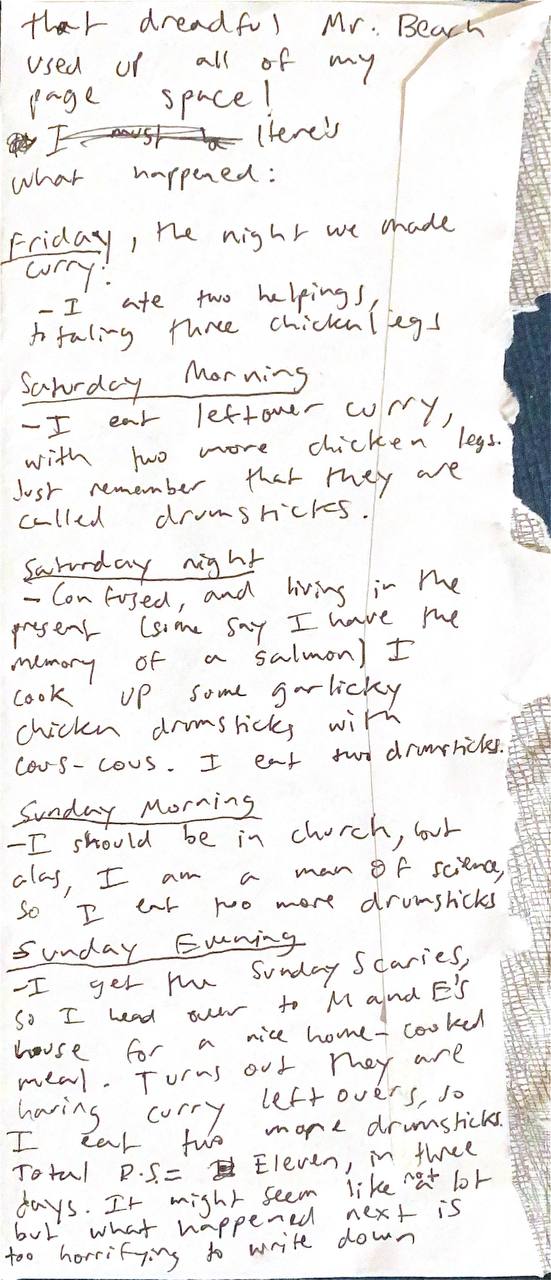 that dreadful Mr. Beach
used up all of my
page space!
I must b Here's
what happened:
Friday, the night we made
curry:
- I ate two helpings,
totaling three chicken legs
Saturday Morning
- I eat leftover curry,
with two more chicken legs.
Just remember that they are
called drumsticks.
Saturday night
- Confused, and living in the
present (some say I have the
memory of a salmon) I
cook up some garlicky
chicken drumsticks with
cous-cous. I eat two drumsticks.
Sunday Morning
- I should be in church, but
alas, I am a man of science,
so I eat two more drumsticks
Sunday Evening
- I get the Sunday Scaries,
so I head over to M and E's
house for a nice home-cooked
meal. Turns out they are
having curry leftovers, so
I eat two more drumsticks.
Total D.S = Eleven, in three
days. It might seem like not a lot
but what happened next is
too horrifying to write down